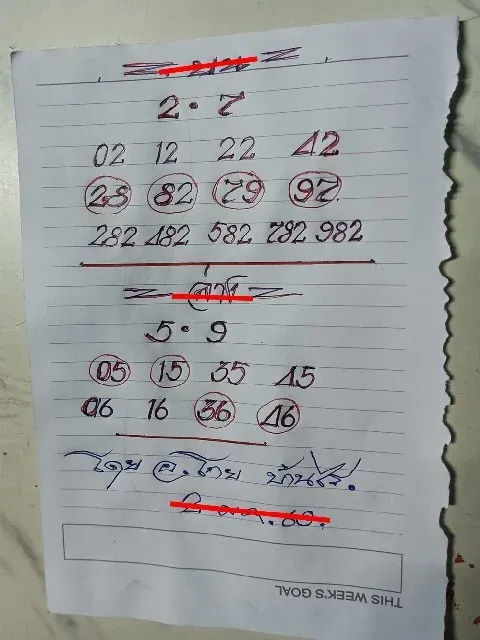 2 • 7
02 12 22 42
28 82 79 97
282 482 582 782 982
ล่าง
5 • 9
05 15 35 45
06 16 36 46
โดย อ.โทย บ้านไร่.
THIS WEEK'S GOAL